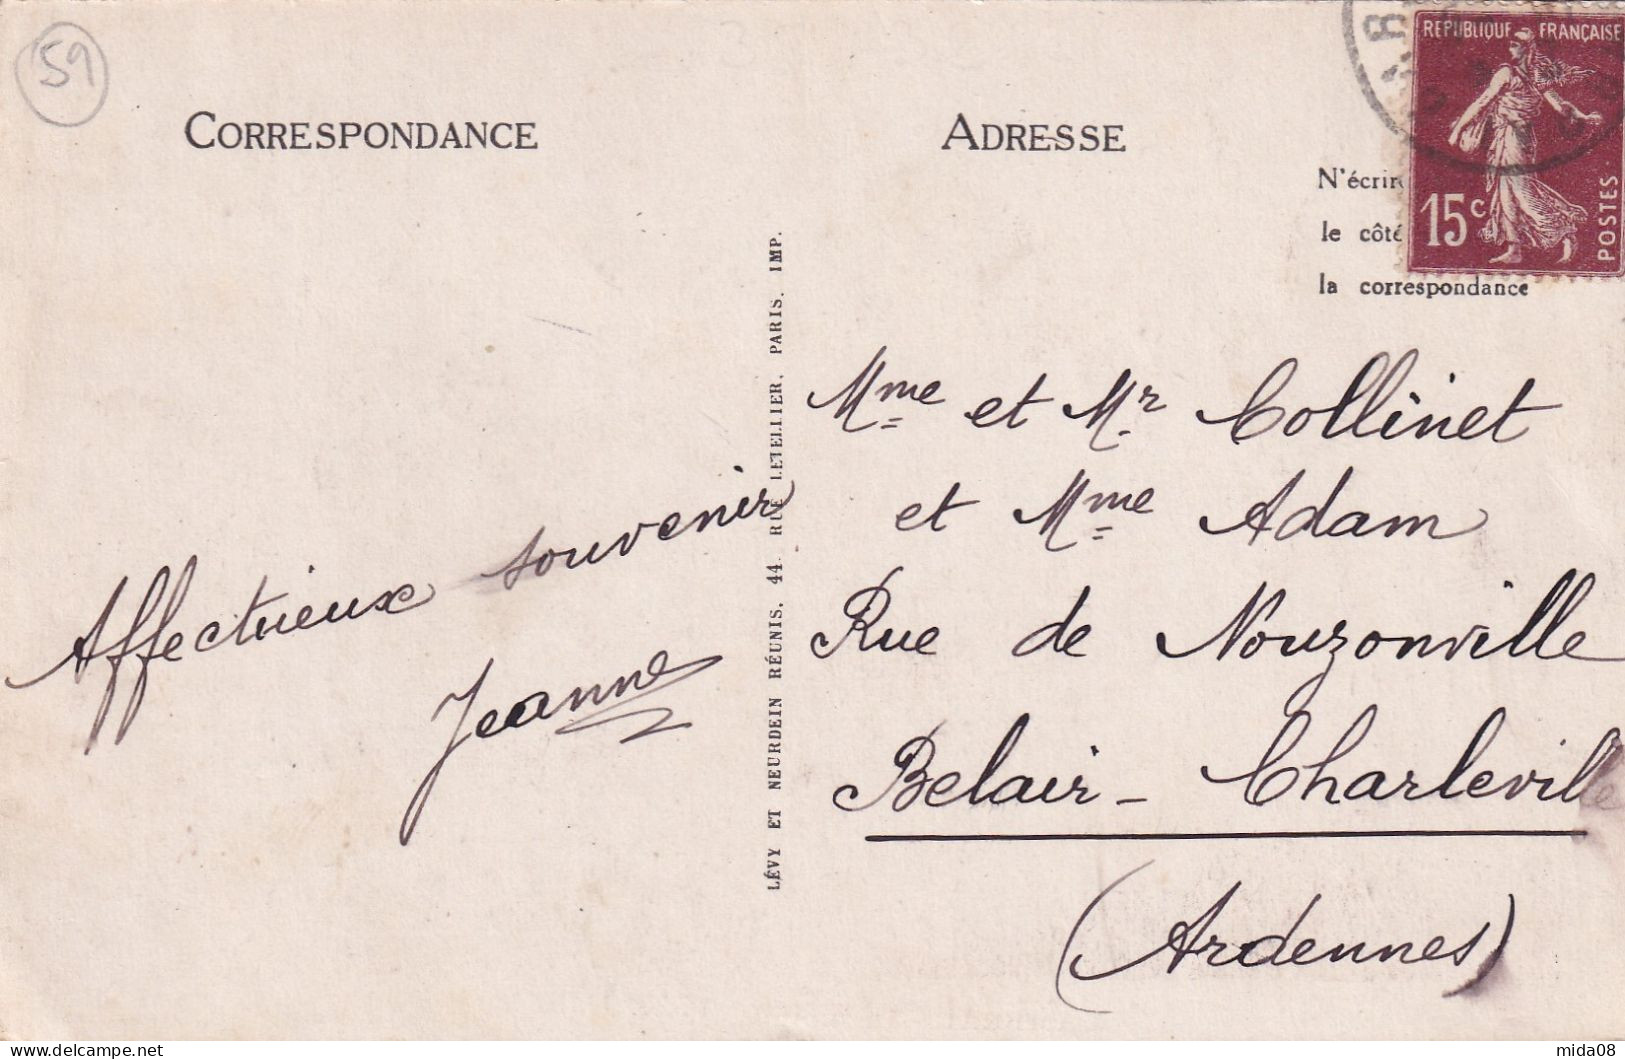 59
CORRESPONDANCE
ADRESSE
RÉPUBLIQUE FRANÇAISE
15c
POSTES
N'écrire
le côté
la correspondance
Affectueux souvenir
Jeanne
LÉVY ET NEURDEIN RÉUNIS, 44, RUE LETELLIER, PARIS, IMP.
Mme et Mr Collinet
et Mme Adam
Rue de Nouzonville
Belair - Charleville
(Ardennes)
mida08